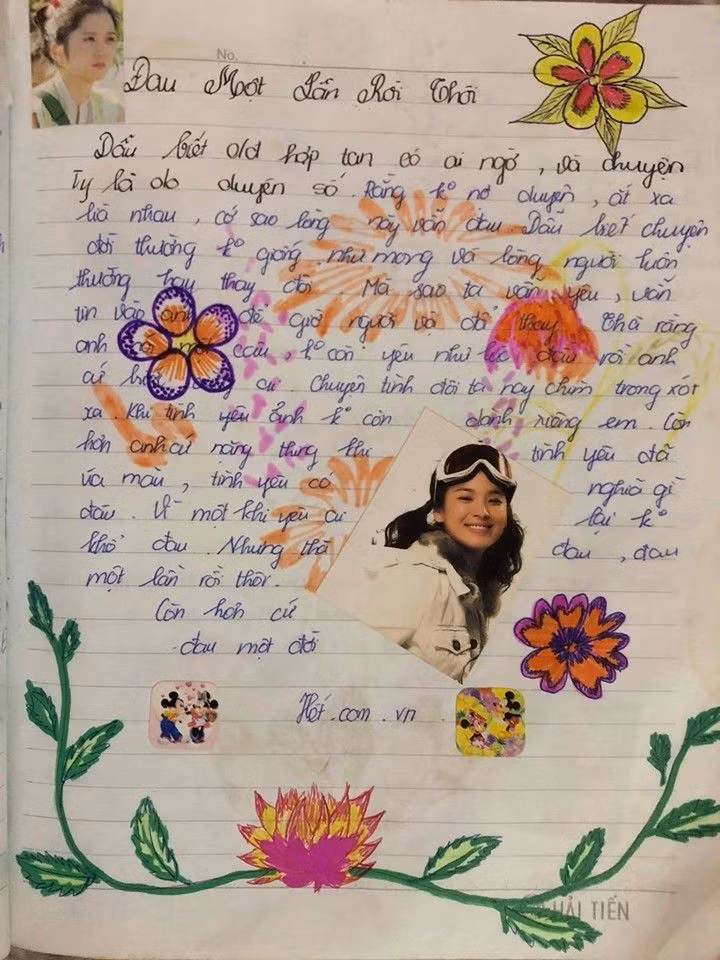 No.
Đau Một Lần Rồi Thôi
Dẫu biết old hợp tan có ai ngờ, và chuyện
Ty là do duyên số. Rằng ko nợ duyên, ắt xa
lìa nhau, cớ sao lòng này vẫn đau. Dẫu biết chuyện
đời thường ko giống như mong và lòng người luôn
thường hay thay đổi. Mà sao ta vẫn yêu, vẫn
tin vào anh để giờ người vội đổi thay. Thà rằng
anh nói một câu, ko còn yêu như lúc đầu rồi anh
cứ cu. Chuyện tình đôi ta nay chìm trong xót
xa. Khi tình yêu ảnh ko còn dành riêng em. Còn
hơn anh cứ nặng thing khi tình yêu đã
úa màu, tình yêu có nghĩa gì
đâu. Vì một khi yêu cu lại ko
khổ đau. Nhưng thà đau, đau
một lần rồi thôi.
Còn hơn cứ
đau một đời
Hết.com.vn
HẢI TIẾN